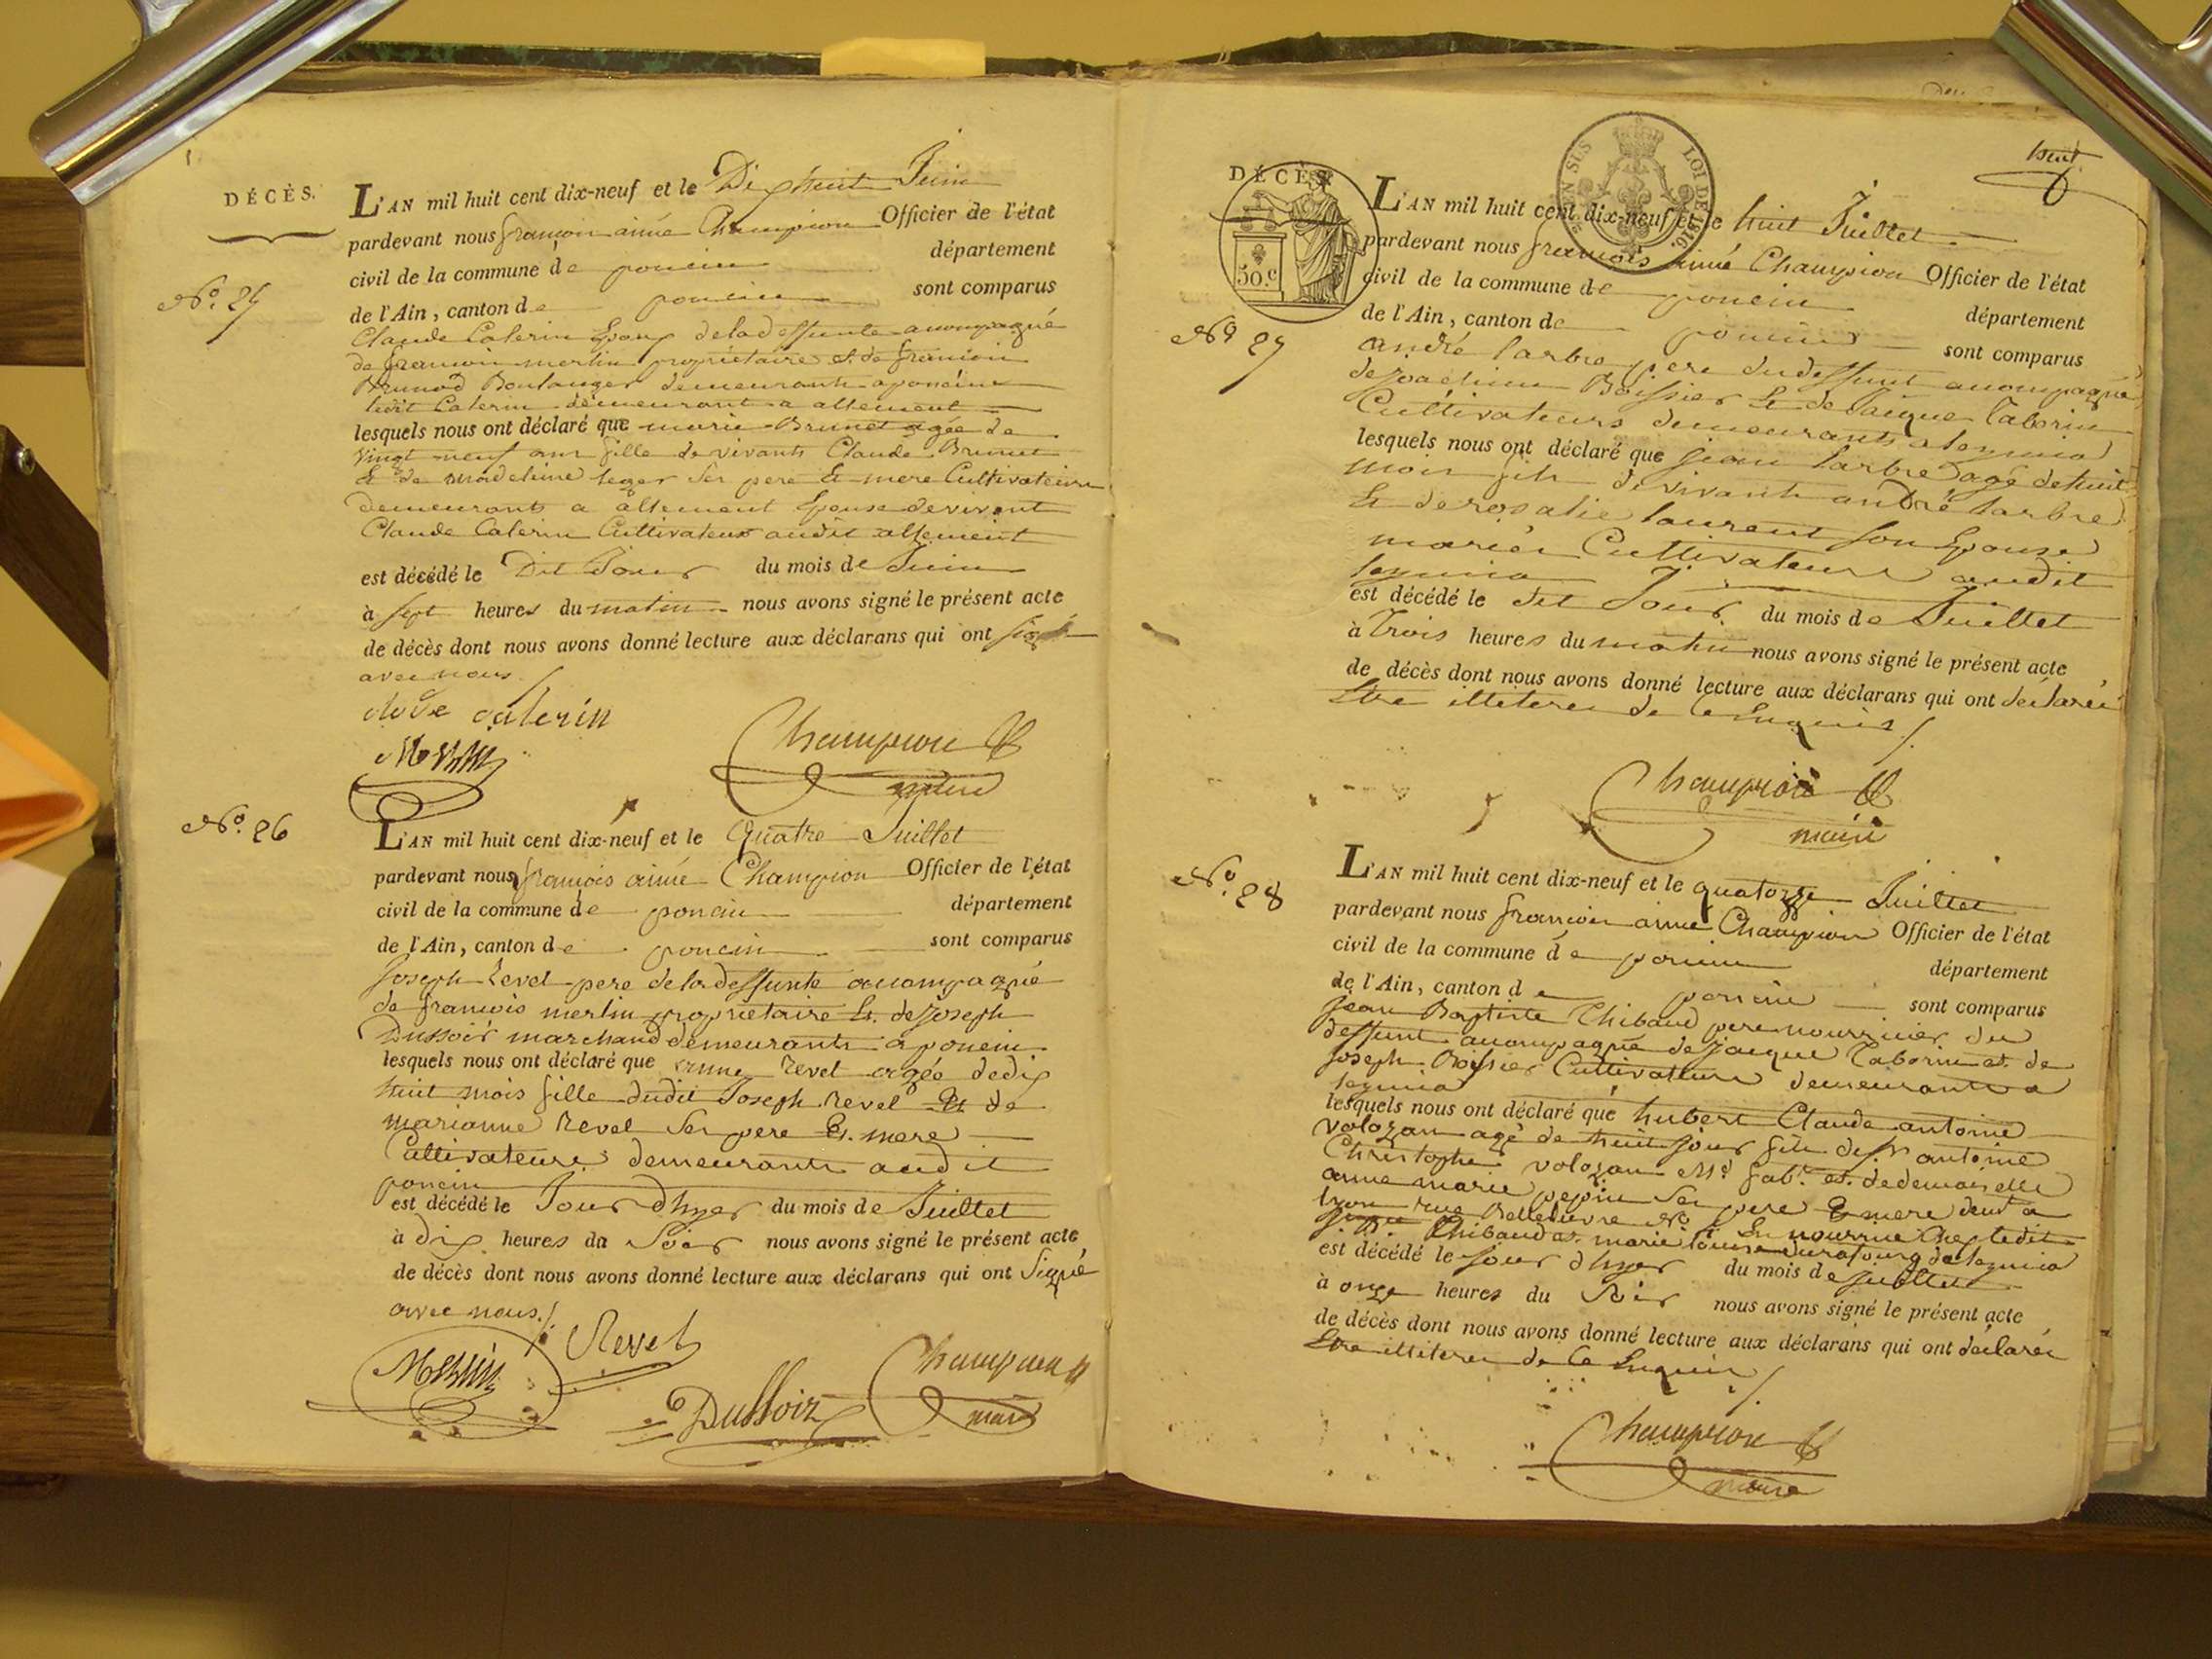 DÉCÈS.
L'AN mil huit cent dix-neuf et le Dix huit Juin
pardevant nous francois aimé Champion Officier de l'état
civil de la commune de poncin département
de l'Ain, canton de poncin sont comparus
Claude Caterin Epoux de la deffunte acompagné
de francois merlin propriétaire et de francois
Brunod Boulanger demeurants a poncin
Caterin demeurant a allement
lesquels nous ont déclaré que marie Brunet agée de
vingt neuf ans fille de vivants Claude Brunet
Et de madelaine leger Ses pere Et mere Cultivateurs
demeurants a allement Epouse de vivant
Claude Caterin Cultivateur audit allement
est décédé le Dit Jour du mois de Juin
à sept heures du matin nous avons signé le présent acte
de décès dont nous avons donné lecture aux déclarans qui ont signé
avec nous /
clode caterin
Merlin
Champion
maire
N°. 26
L'AN mil huit cent dix-neuf et le quatre Juillet
pardevant nous francois aimé Champion Officier de l'état
civil de la commune de poncin département
de l'Ain, canton de poncin sont comparus
Joseph Revel pere de la deffunte acompagné
de francois merlin propriétaire Et de Joseph
Dussoir marchand demeurants a poncin
lesquels nous ont déclaré que Revel agée de dix
huit mois fille dudit Joseph Revel Et de
marianne Revel Ses pere Et mere
Cultivateurs demeurants audit
poncin
est décédé le Jour d'hyer du mois de Juillet
à dix heures du Soir nous avons signé le présent acte
de décès dont nous avons donné lecture aux déclarans qui ont Signé
avec nous /.
Revel
Merlin
Dussoir
Champion
maire
huit
DÉCÈS
50.c
LOI DE 1816.
L'AN mil huit cent dix-neuf et le huit Juillet
pardevant nous francois aimé Champion Officier de l'état
civil de la commune de poncin département
de l'Ain, canton de poncin sont comparus
N° 27
andré larbre pere du deffunt acompagné
de Joachim Boissier Et de Jacque Taborin
Cultivateurs demeurants a leymia
lesquels nous ont déclaré que jean larbre agé de huit
mois fils de vivants andré larbre
Et de rosalie laurent son Epouse
mariés Cultivateurs audit
leymia
est décédé le dit Jour du mois de Juillet
à Trois heures du matin nous avons signé le présent acte
de décès dont nous avons donné lecture aux déclarans qui ont déclarés
Etre illiteres de Ce Enquis /.
Champion
maire
N°. 28
L'AN mil huit cent dix-neuf et le quatorze Juillet
pardevant nous francois aimé Champion Officier de l'état
civil de la commune de poncin département
de l'Ain, canton de poncin sont comparus
jean Baptiste Thibaud pere nourricier du
deffunt acompagné de jacque Taborin et de
joseph Boissier Cultivateurs demeurants a
leymia
lesquels nous ont déclaré que hubert Claude antoine
volozan agé de huit jours fils de sr antoine
Christophe volozan Md. fabt. et de demoiselle
anne marie pepin Ses pere Et mere demt a
lyon rue Bellelievre N° En nourrice Chez ledit
Thibaud et marie louise de leymia
est décédé le jour d'hyer du mois de juillet
à onze heures du Soir nous avons signé le présent acte
de décès dont nous avons donné lecture aux déclarans qui ont déclarés
Etre illiteres de Ce Enquis /
Champion
maire